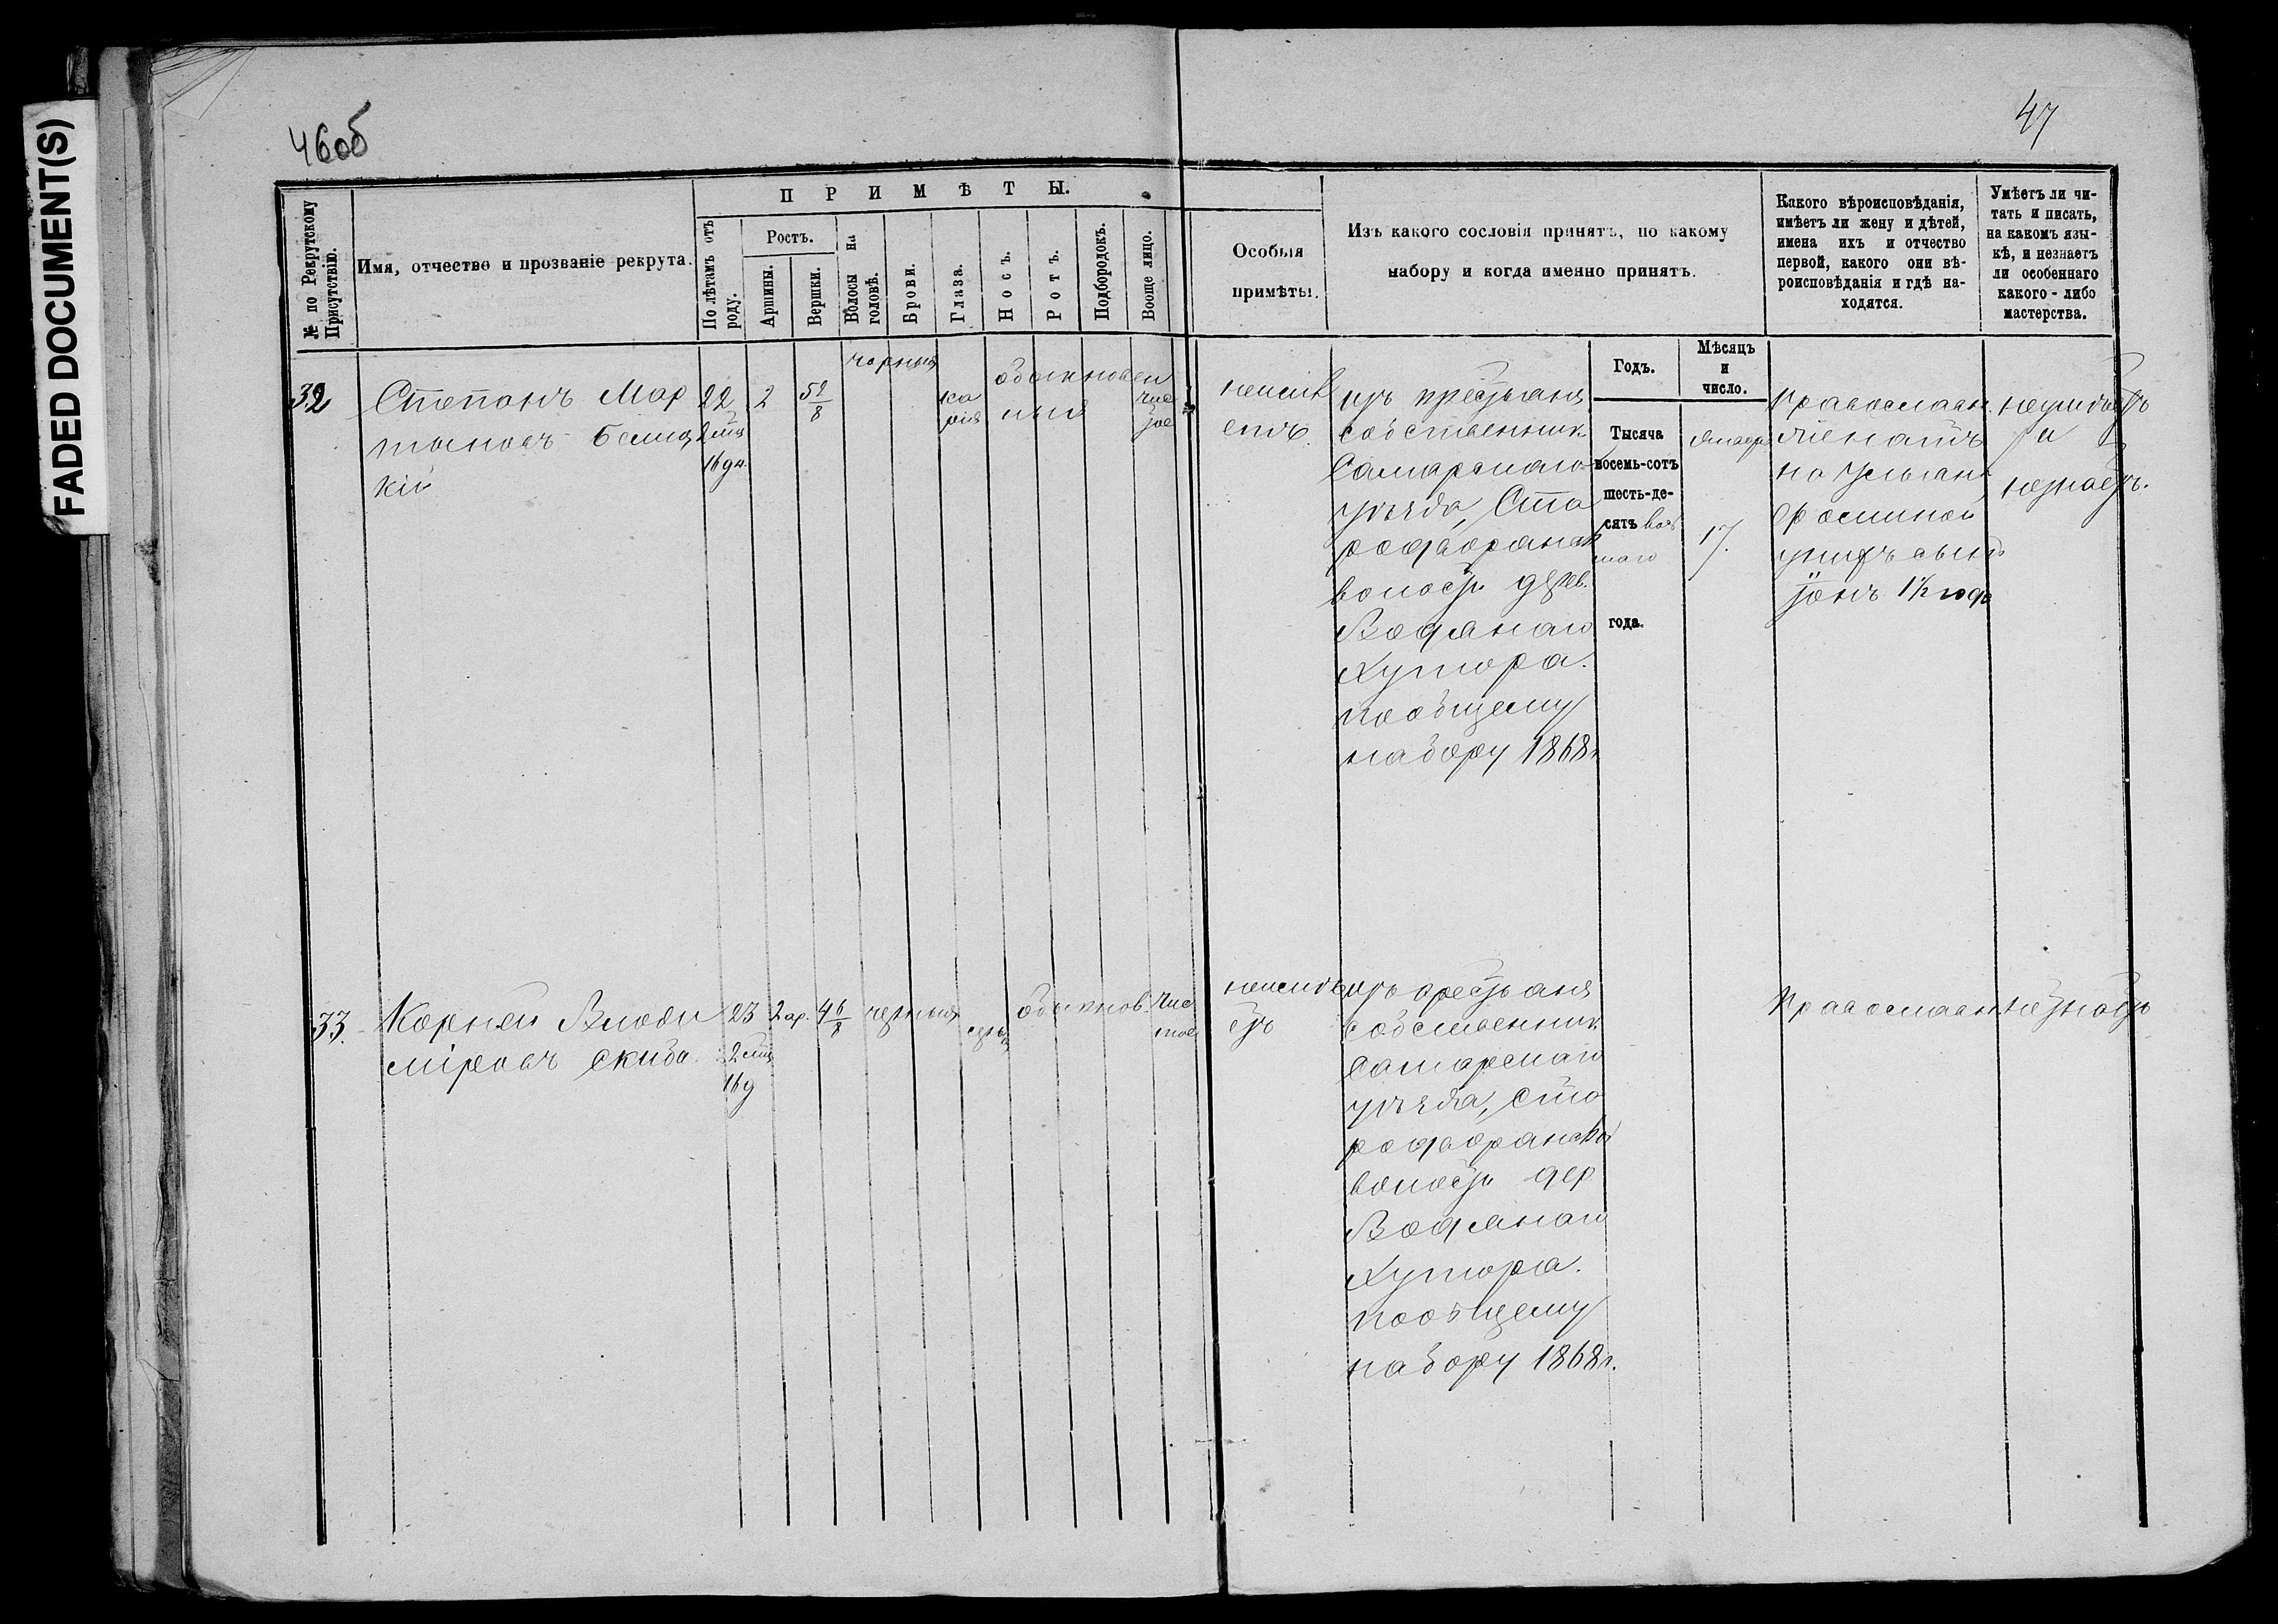 FADED DOCUMENT(S)
46об
47
№ по Рекрутскому Присутствію.
Имя, отчество и прозваніе рекрута.
ПРИМѢТЫ.
По лѣтамъ отъ роду.
Ростъ.
Аршины.
Вершки.
Волосы на головѣ.
Брови.
Глаза.
Носъ.
Ротъ.
Подбородокъ.
Вообще лицо.
Особыя
примѣты.
Изъ какого сословія принятъ, по какому
набору и когда именно принятъ.
Какого вѣроисповѣданія,
имѣетъ ли жену и дѣтей,
имена ихъ и отчество
первой, какого они вѣ-
роисповѣданія и гдѣ на-
ходятся.
Умѣетъ ли чи-
тать и писать,
на какомъ язы-
кѣ, и незнаетъ
ли особеннаго
какого-либо
мастерства.
Годъ.
Мѣсяцъ
и
число.
32
Степанъ Мар
тыновъ
кій
22
2 мц
16 дн.
2
5 2/8
черныя
ка
рія
обыкновен
ный
чис
тое
неимѣ
етъ.
изъ крестьянъ
собственник
Самарскаго
уѣзда, Ста
родворянск
волости дерев.
Водянаго
Хутора.
пообщему
набору 1868г.
Тысяча
восемь-сотъ
шесть-де-
сятъ вось
маго
года.
Январ
17.
Православн.
женатъ
на Ульян
Фоминой
у нихъ сынъ
1½ года
неумѣетъ
и
незнаетъ.
33.
Корней Влади
міровъ Скиба
23
2 мц
16 д
2 ар.
4 6/8
черныя
серы
обыкнов.
Чис
тое
неимѣ
етъ
изъ крестьянъ
собственник
Самарскаго
уѣзда, Ста
родворянской
волости дер
Водянаго
Хутора.
пообщему
набору 1868г.
Православн
незнаетъ